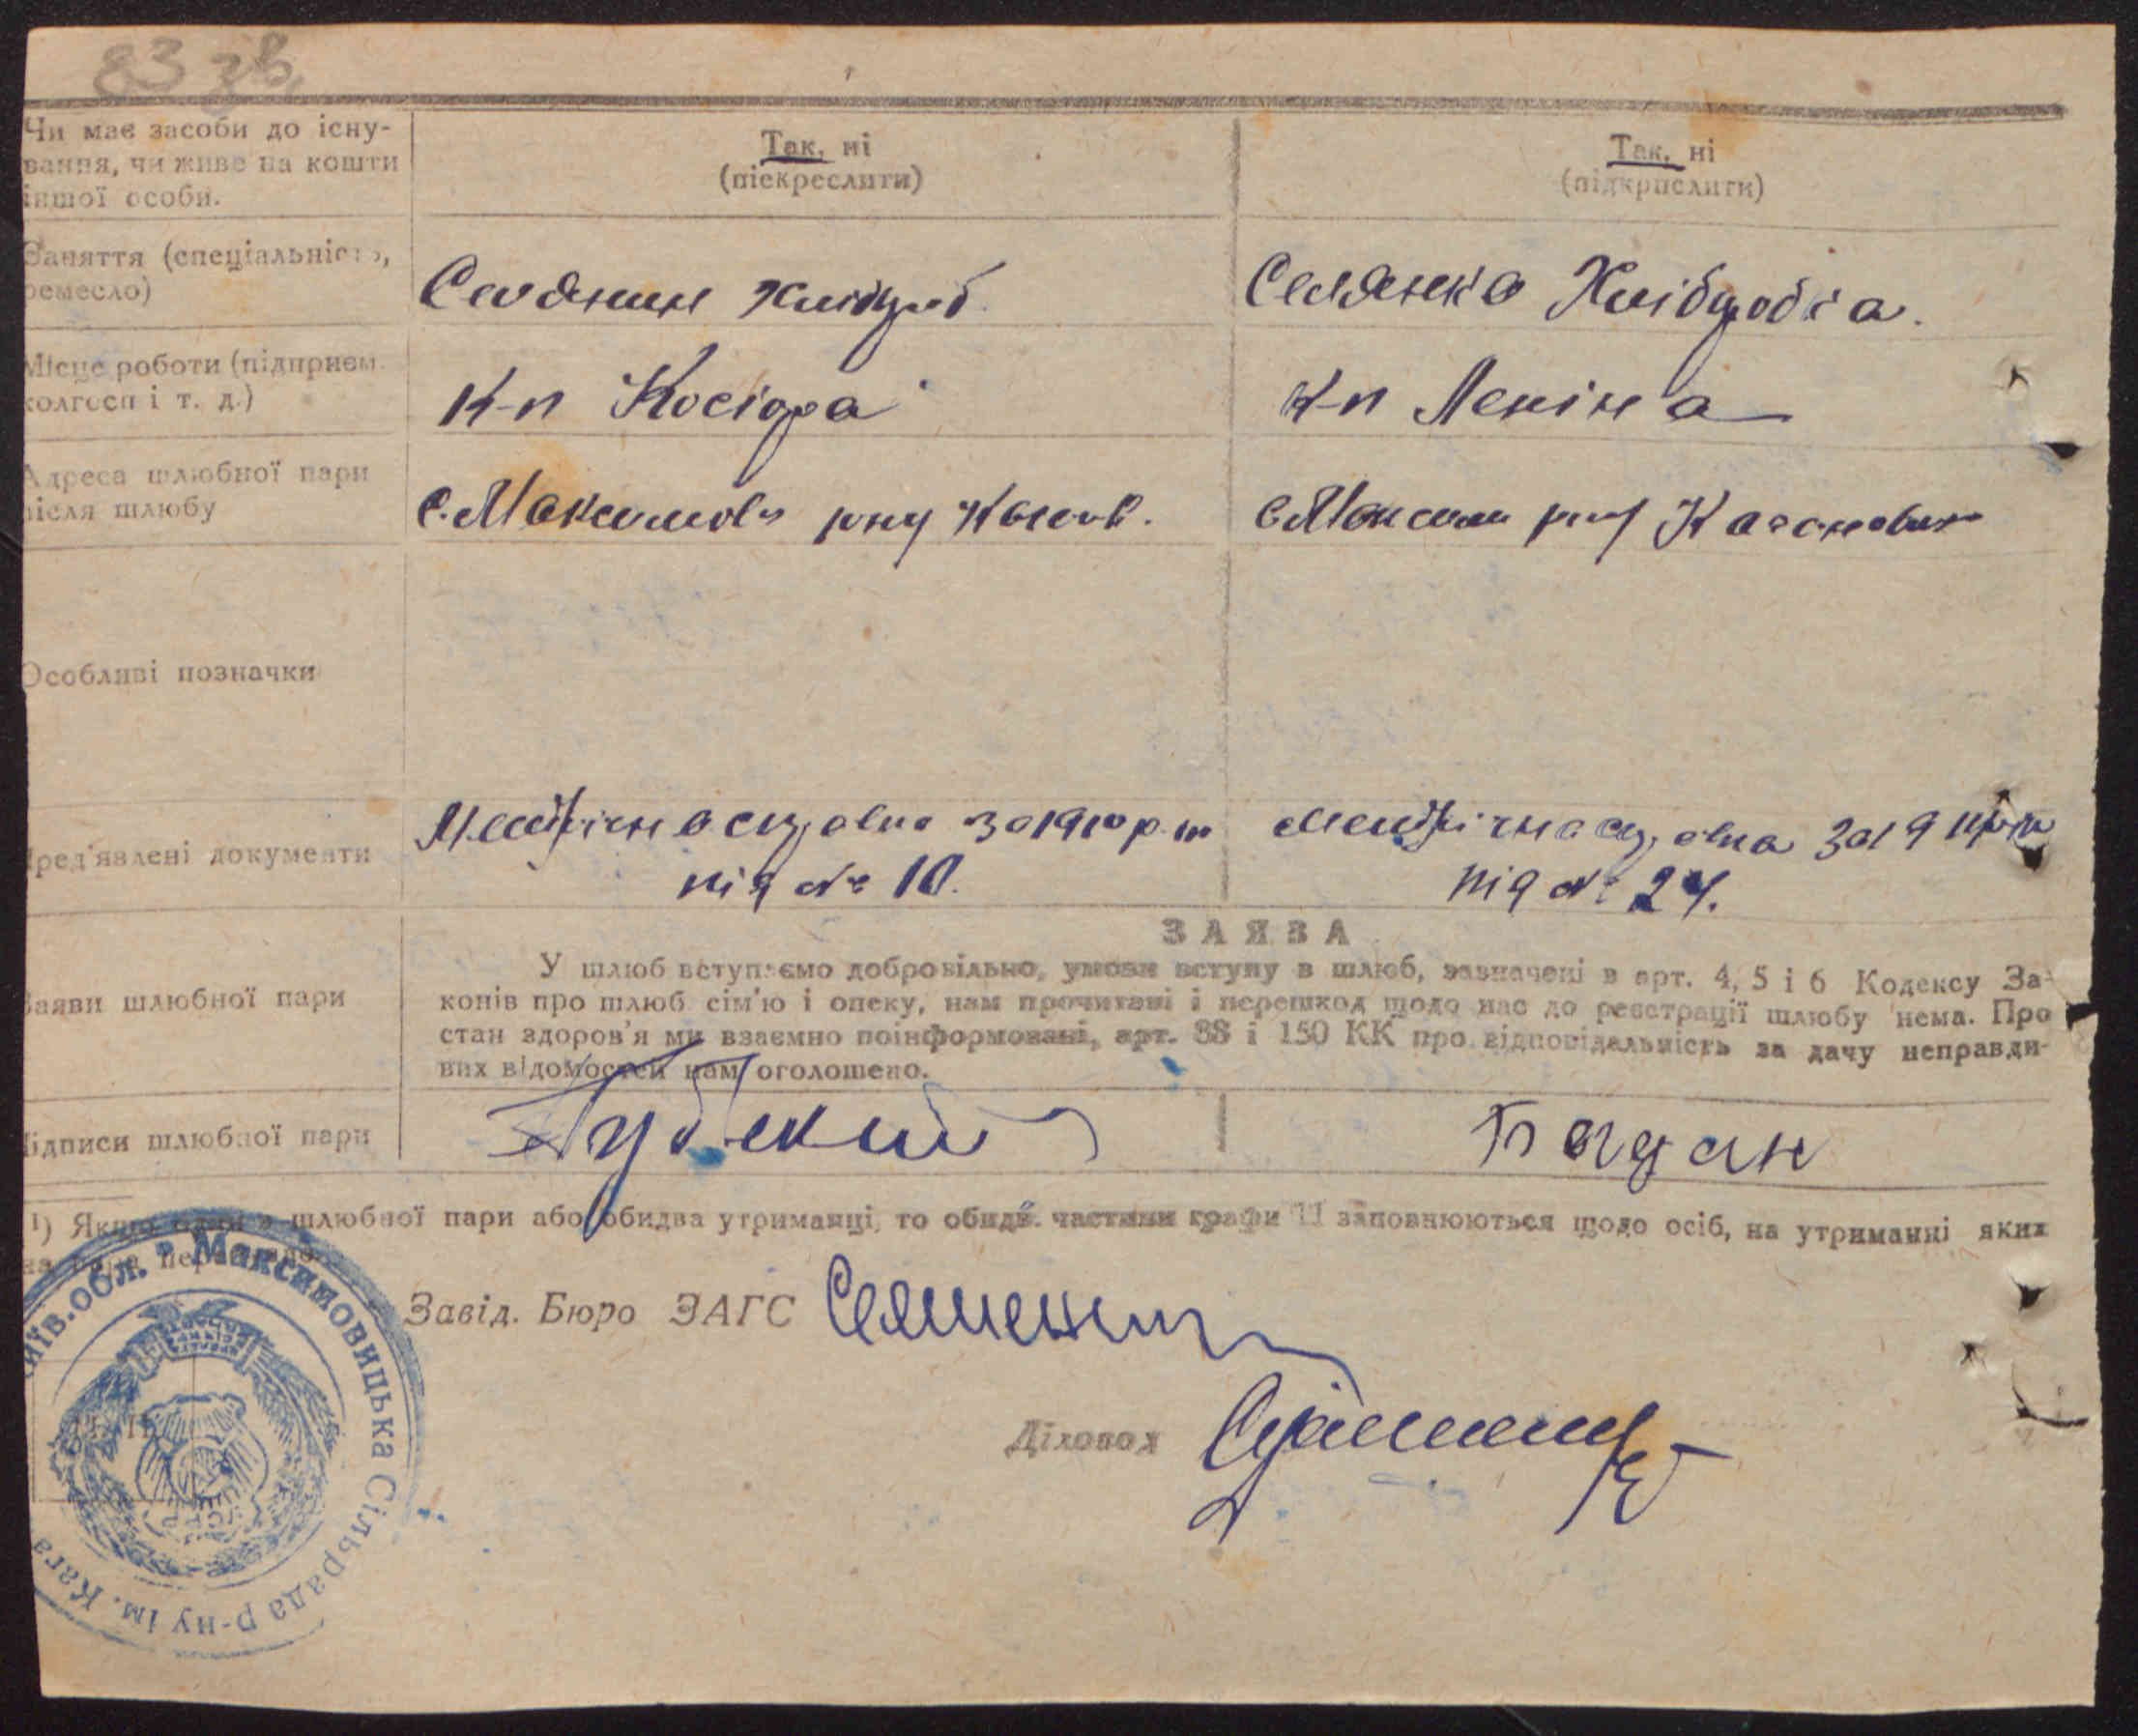 83 зв
Чи має засоби до існу-
вання, чи живе на кошти
іншої особи.
Так, ні
(піекреслити)
Так, ні
(підкрислити)
Заняття (спеціальність,
ремесло)
Селянин Хлібороб.
Селянка Хліборобка.
Місце роботи (підприєм.
колгосп і т. д.)
К-п Косіора
К-п Леніна
Адреса шлюбної пари
після шлюбу
С. Максимов
С Максим Каганович
Особливі позначки
Пред'явлені документи
Метрична за 19
під № 10.
Метрична за 19
під № 24.
Заяви шлюбної пари
ЗАЯВА
У шлюб вступаємо добровільно, умови вступу в шлюб, зазначені в арт. 4, 5 і 6 Кодексу За-
конів про шлюб сім'ю і опеку, нам прочитані і перешкод щодо нас до реєстрації шлюбу нема. Про
стан здоров'я ми взаємно поінформовані, арт. 88 і 150 КК про відповідальність за дачу неправди-
вих відомостей нам оголошено.
Підписи шлюбної пари
Богдан
1) Якщо один з шлюбної пари або обидва утриманці, то обидві частини графи 11 заповнюються щодо осіб, на утриманні яких
Завід. Бюро ЗАГС
Діловод
Київ. обл. Максимовицька Сільрада р-ну ім. Кага